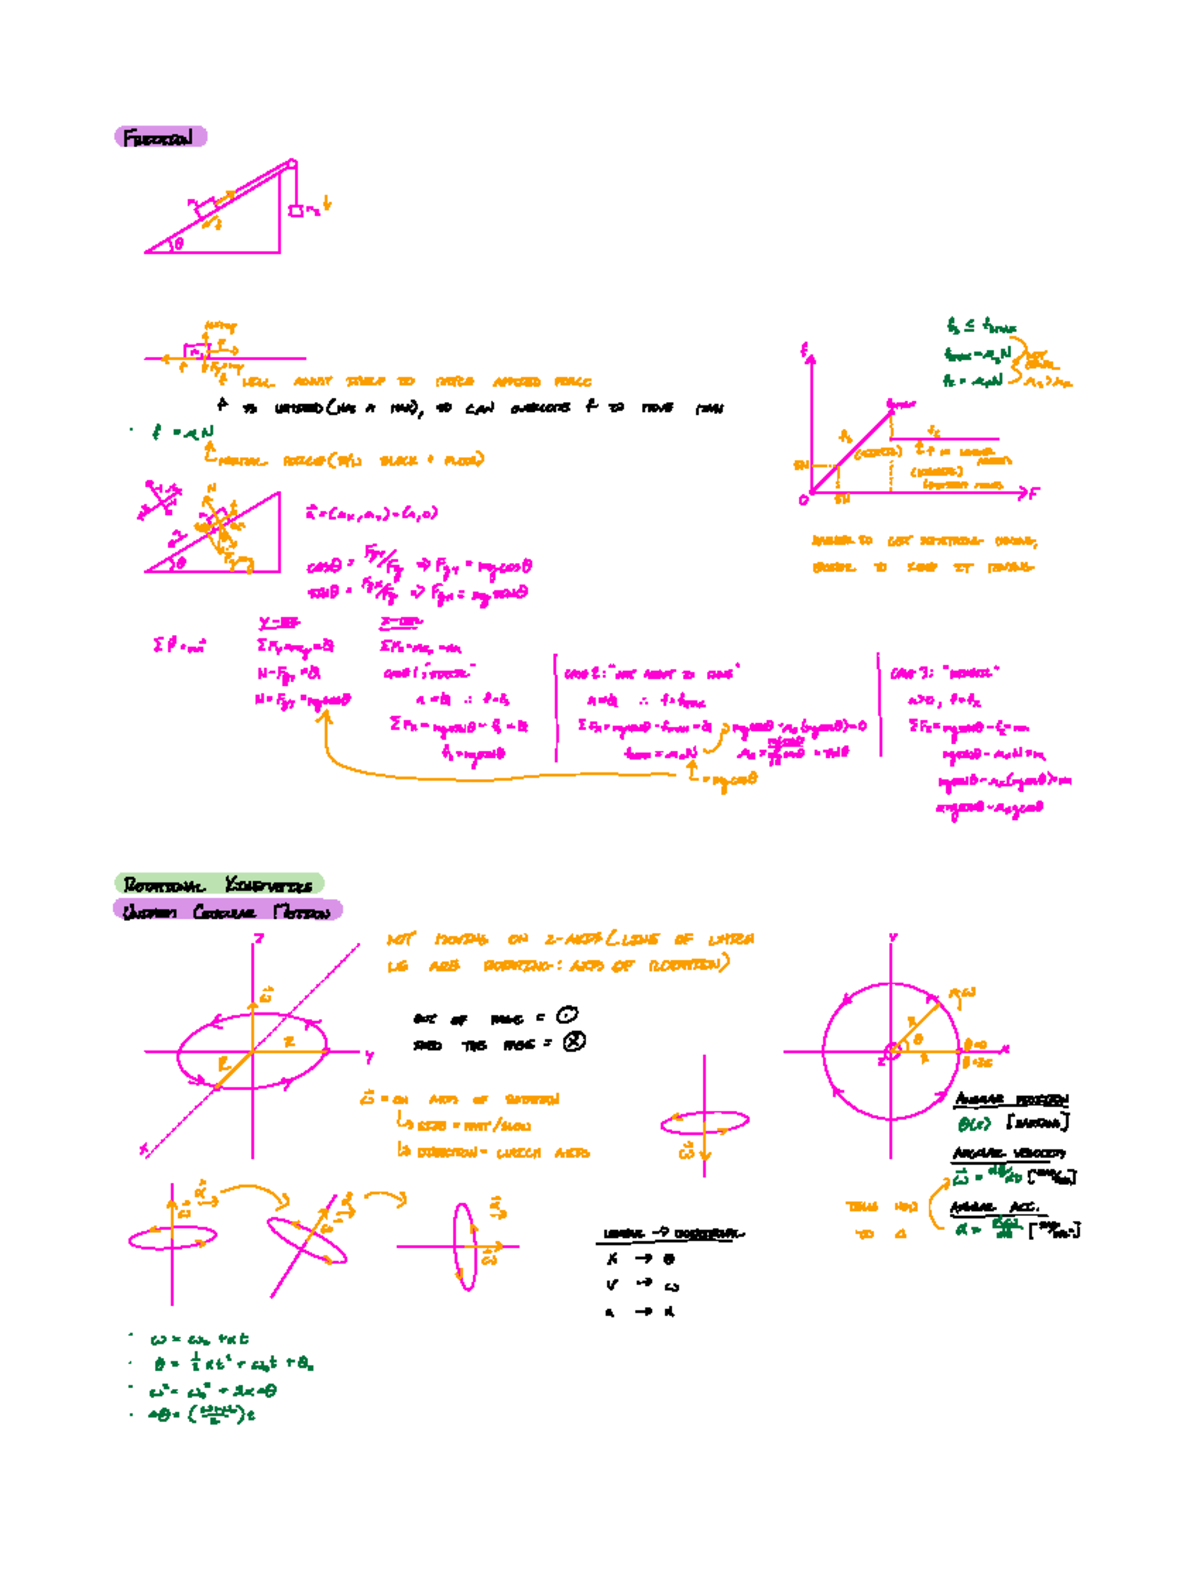 FRICTION
m₂
θ
f_s ≤ f_MAX
f_MAX = μ_s N
f_k = μ_k N
μ_s > μ_k
f WILL ADJUST ITSELF TO MATCH APPLIED FORCE
f IS LIMITED (HAS A MAX), SO CAN OVERCOME f TO MOVE
f = μN
NORMAL FORCE (B/W BLOCK + FLOOR)
f
f_MAX
f_s
(STATIC)
f_k
(KINETIC)
5N
0
5N
F
HARDER TO GET SOMETHING MOVING,
EASIER TO KEEP IT MOVING
N
θ
a⃗ = (a_x, a_y) = (a, 0)
cosθ = F_gy/F_g ⇒ F_gy = mgcosθ
sinθ = F_gx/F_g ⇒ F_gx = mgsinθ
ΣF⃗ = ma⃗
Y-DIR
ΣF_y = ma_y = 0
N - F_gy = 0
N = F_gy = mgcosθ
X-DIR
ΣF_x = ma_x = ma
CASE 1: "STATIC"
a = 0 ∴ f = f_s
ΣF_x = mgsinθ - f_s = 0
f_s = mgsinθ
CASE 2: "JUST ABOUT TO MOVE"
a = 0 ∴ f = f_MAX
ΣF_x = mgsinθ - f_MAX = 0
f_MAX = μ_s N
= mgcosθ
mgsinθ - μ_s(mgcosθ) = 0
μ_s = mgsinθ/mgcosθ = tanθ
CASE 3: "KINETIC"
a > 0, f = f_k
ΣF_x = mgsinθ - f_k = ma
mgsinθ - μ_k N = ma
mgsinθ - μ_k(mgcosθ) = ma
a = gsinθ - μ_k gcosθ
ROTATIONAL KINEMATICS
UNIFORM CIRCULAR MOTION
Z
ω⃗
R
R
Y
X
NOT MOVING ON Z-AXIS (LINE OF WHICH
WE ARE ROTATING: AXIS OF ROTATION)
OUT OF PAGE = ⊙
INTO THE PAGE = ⊗
ω⃗ = ON AXIS OF ROTATION
↳ SIZE = FAST/SLOW
↳ DIRECTION = WHICH AXIS
ω⃗
Y
ω
R
θ
R
Z
X
θ = 0
θ = 2π
ANGULAR POSITION
θ(t) [RADIANS]
ANGULAR VELOCITY
ω⃗ = dθ/dt [RAD/SEC]
ANGULAR ACC.
α = dω/dt [RAD/SEC²]
ω⃗
ω⃗
ω⃗
LINEAR → ROTATIONAL
X → θ
V → ω
a → α
· ω = ω₀ + αt
· θ = ½αt² + ω₀t + θ₀
· ω² = ω₀² + 2αΔθ
· Δθ = ((ω+ω₀)/2)t